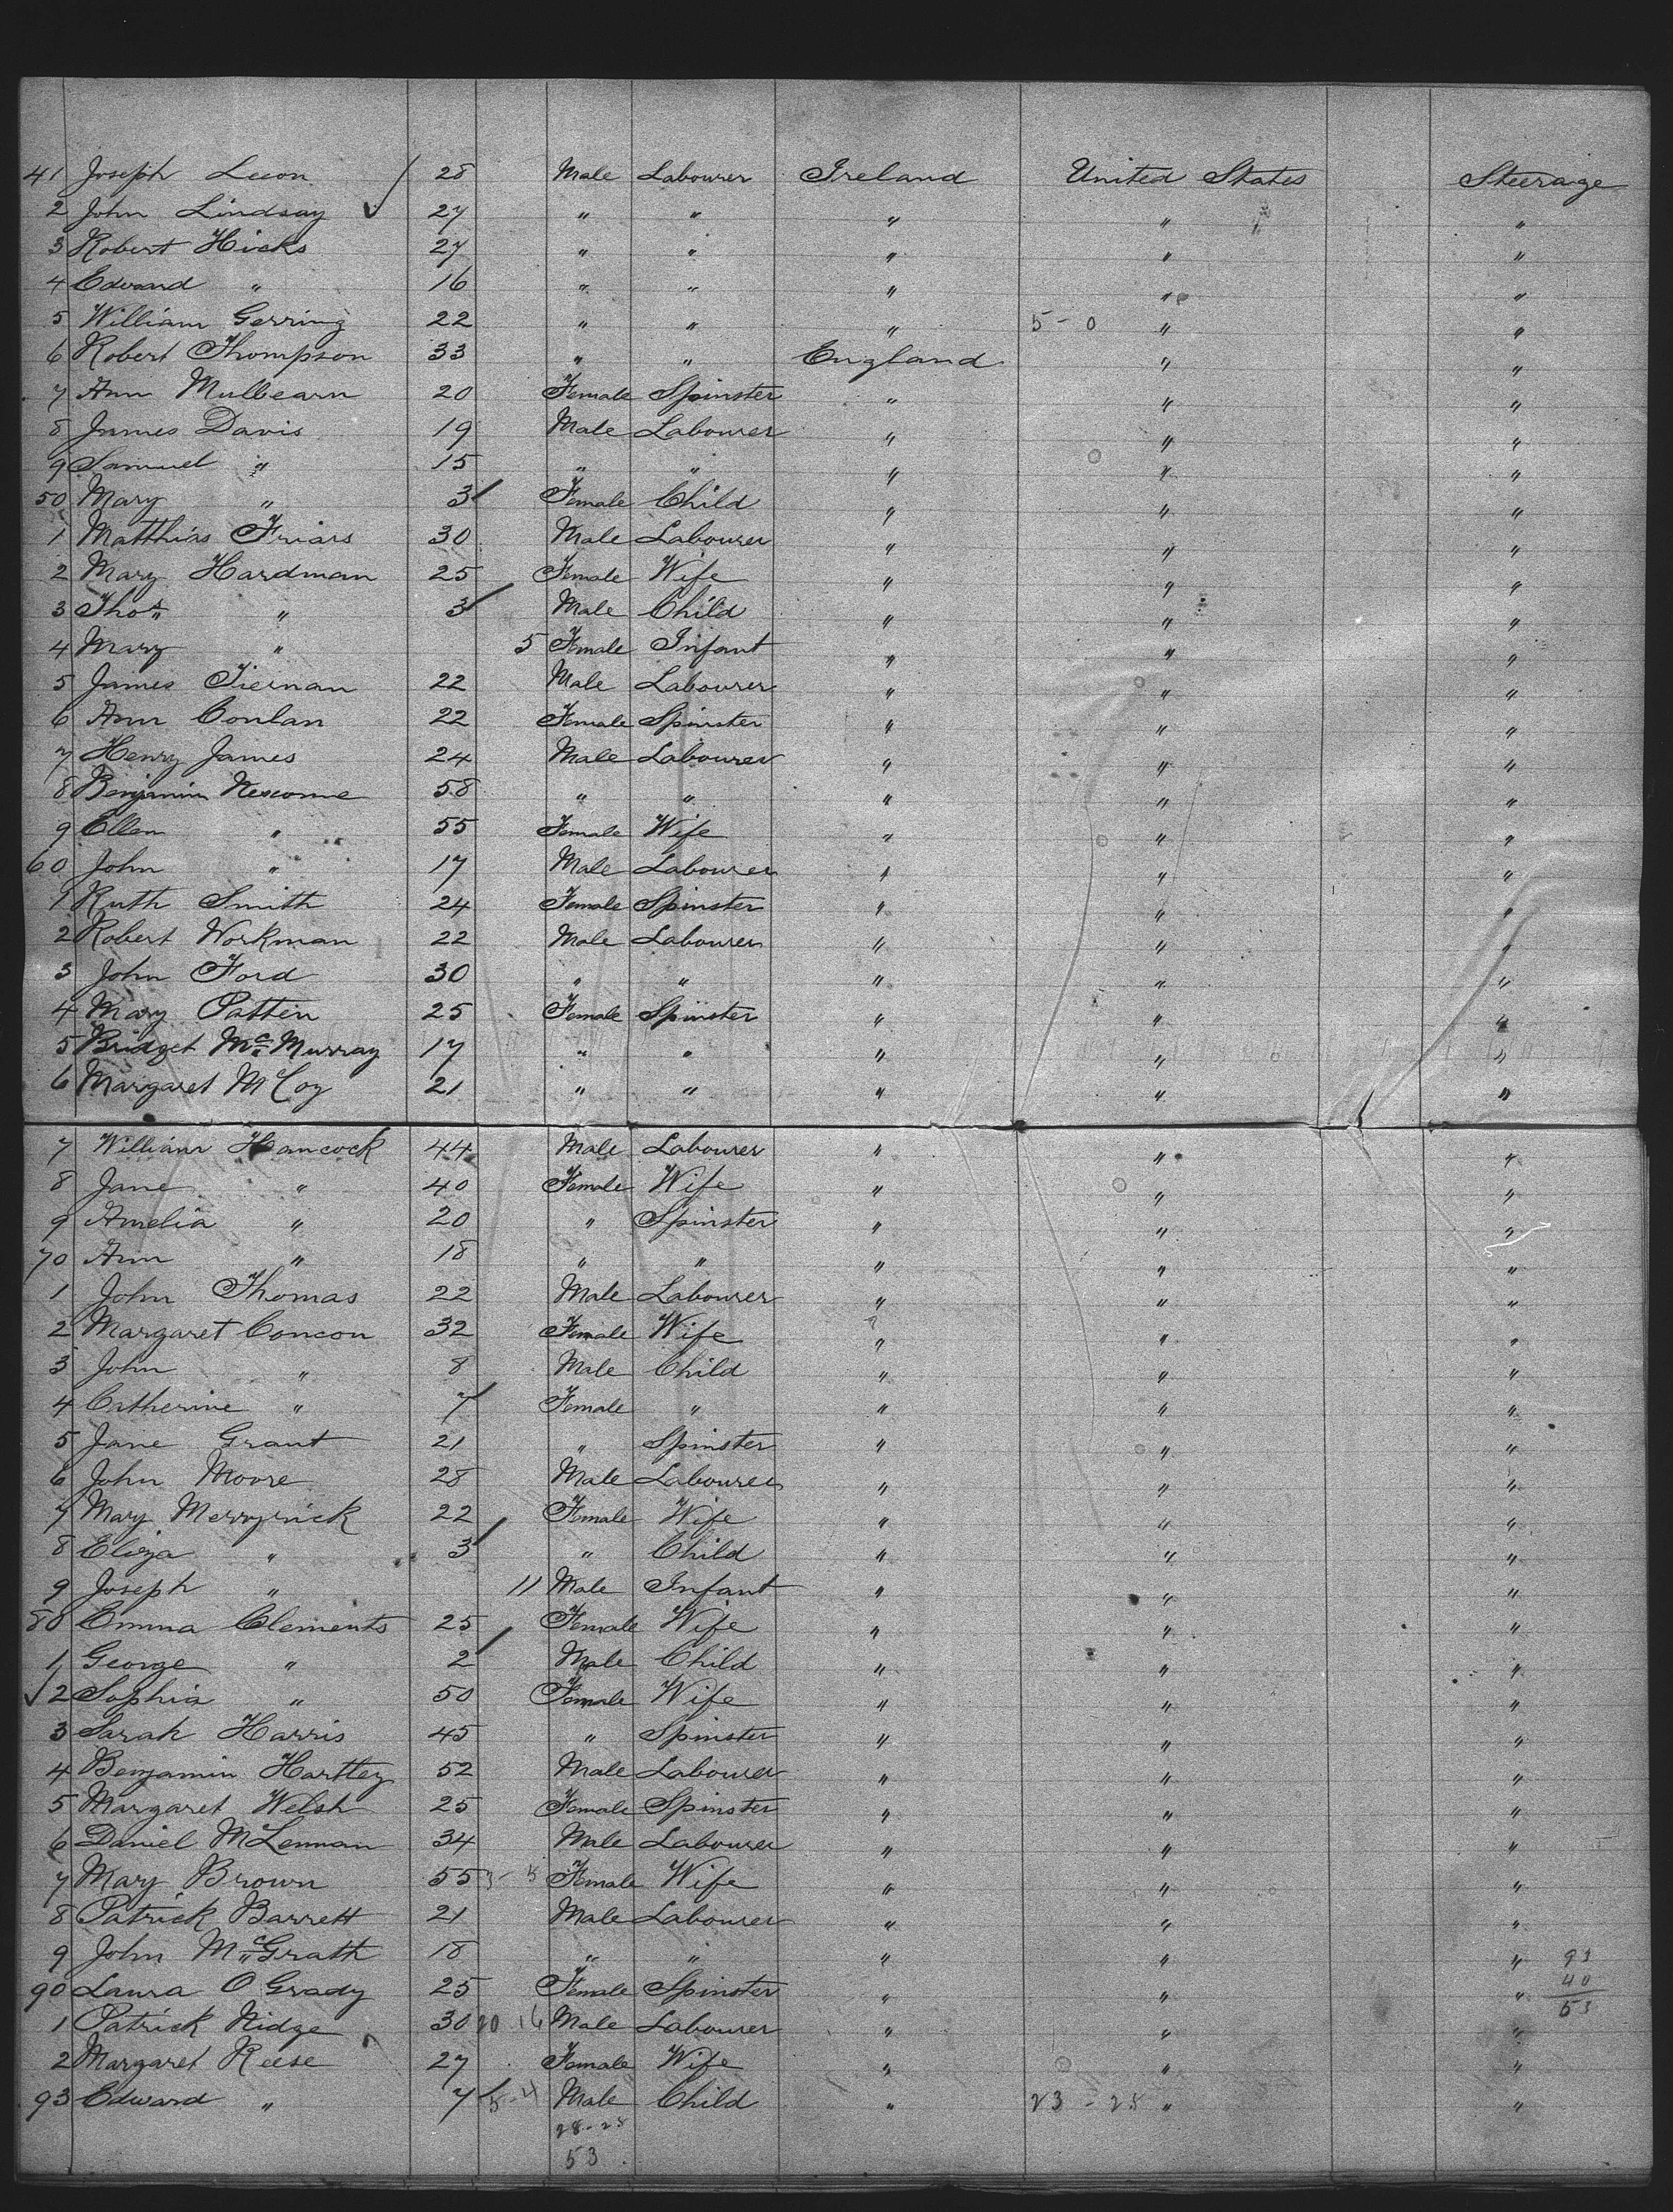 41 Joseph Leeon 28 Male Labourer Ireland United States Steerage
2 John Lindsay ✓ 27 " " " " "
3 Robert Hicks 27 " " " " "
4 Edward " 16 " " " " "
5 William Gerring 22 " " " 5-0 " "
6 Robert Thompson 33 " " England " "
7 Ann Mulbearn 20 Female Spinster " " "
8 James Davis 19 Male Labourer " " "
9 Samuel " 15 " " " " "
50 Mary " 3 Female Child " " "
1 Matthias Friars 30 Male Labourer " " "
2 Mary Hardman 25 Female Wife " " "
3 Thos " 3 Male Child " " "
4 Mary " 5 Female Infant " " "
5 James Tiernan 22 Male Labourer " " "
6 Ann Conlan 22 Female Spinster " " "
7 Henry James 24 Male Labourer " " "
8 Benjamin Newcome 58 " " " " "
9 Ellen " 55 Female Wife " " "
60 John " 17 Male Labourer " " "
1 Ruth Smith 24 Female Spinster " " "
2 Robert Workman 22 Male Labourer " " "
3 John Ford 30 " " " " "
4 Mary Patten 25 Female Spinster " " "
5 Bridget McMurray 17 " " " " "
6 Margaret McCoy 21 " " " " "
7 William Hancock 44 Male Labourer " " "
8 Jane " 40 Female Wife " " "
9 Amelia " 20 " Spinster " " "
70 Ann " 18 " " " " "
1 John Thomas 22 Male Labourer " " "
2 Margaret Concon 32 Female Wife " " "
3 John " 8 Male Child " " "
4 Catherine " 7 Female " " " "
5 Jane Grant 21 " Spinster " " "
6 John Moore 28 Male Labourer " " "
7 Mary Merryrick 22 Female Wife " " "
8 Eliza " 3 " Child " " "
9 Joseph " 11 Male Infant " " "
80 Emma Clements 25 Female Wife " " "
1 George " 2 Male Child " " "
✓ 2 Sophia " 50 Female Wife " " "
3 Sarah Harris 45 " Spinster " " "
4 Benjamin Hartley 52 Male Labourer " " "
5 Margaret Welsh 25 Female Spinster " " "
6 Daniel McLennan 34 Male Labourer " " "
7 Mary Brown 55 3-5 Female Wife " " "
8 Patrick Barrett 21 Male Labourer " " "
9 John McGrath 18 " " " " " 93
90 Laura O Grady 25 Female Spinster " " " 40
1 Patrick Nidge 30 20 16 Male Labourer " " " 53
2 Margaret Reese 27 Female Wife " " "
93 Edward " 7 5-4 Male Child " 23-25 " "
28-25
53